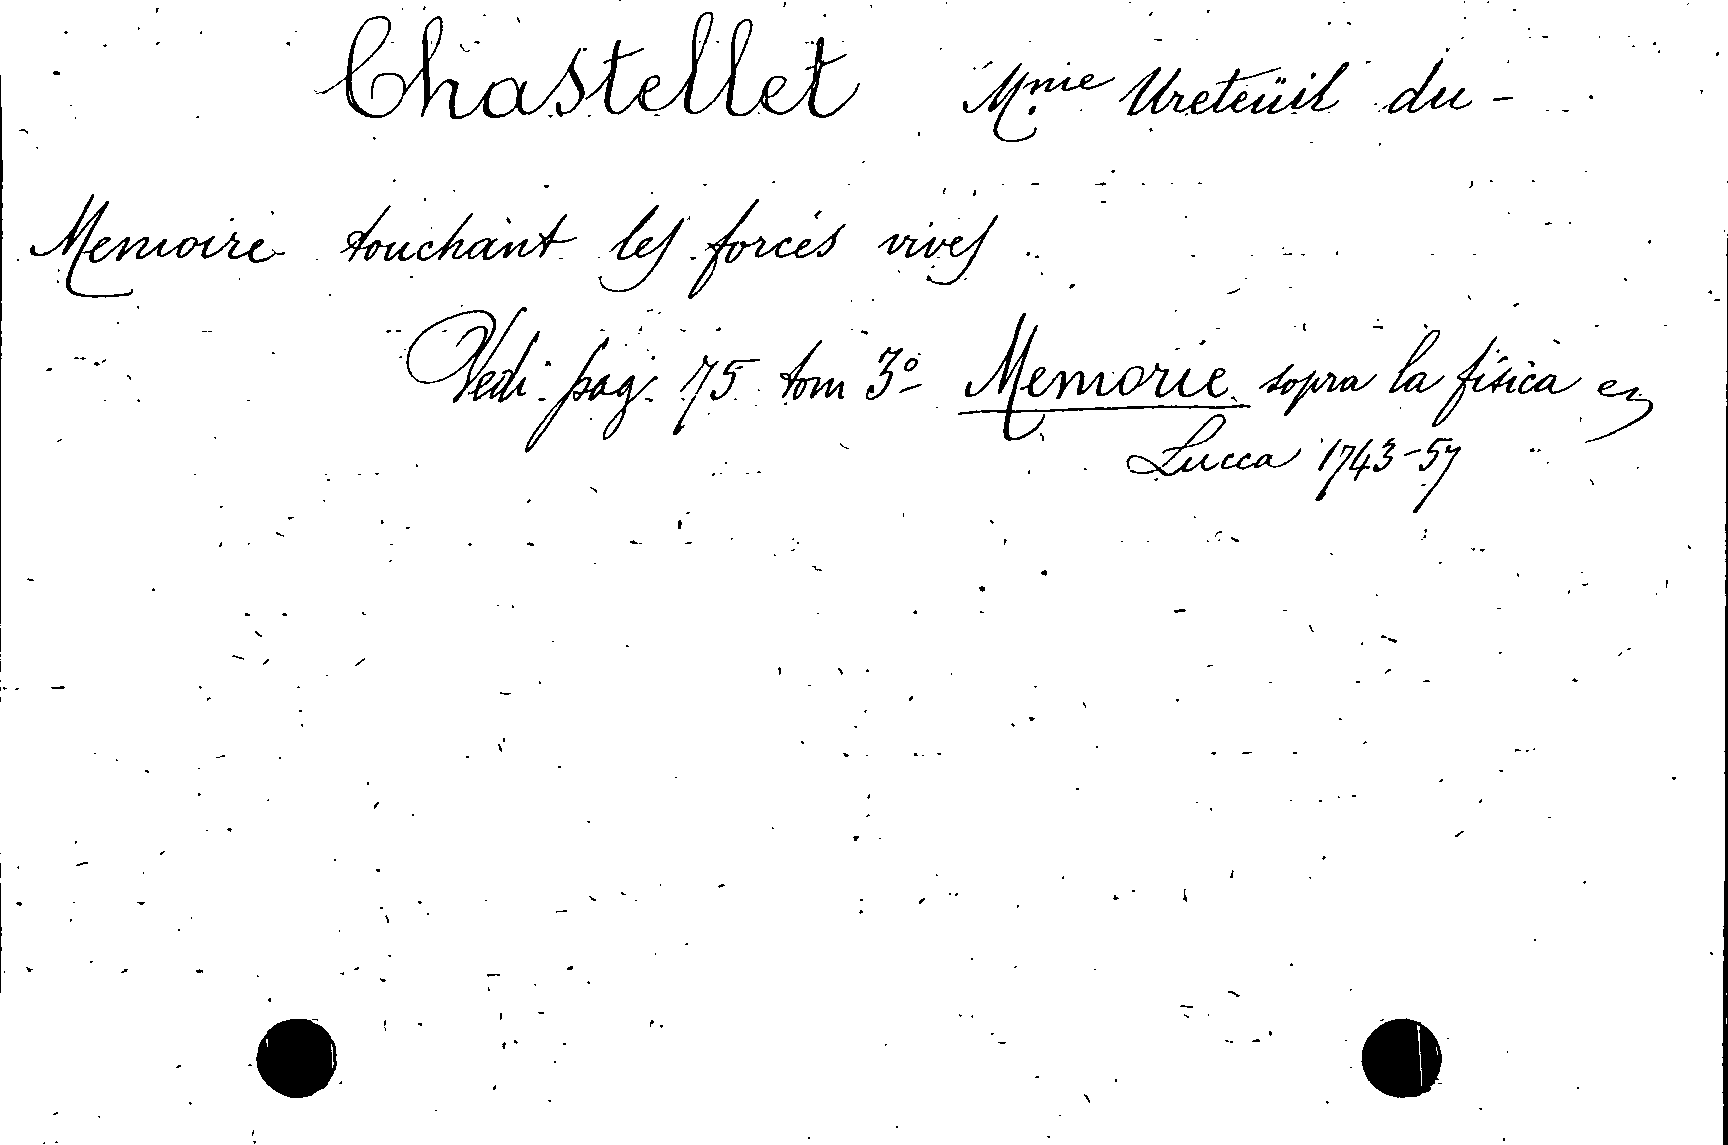 Chastellet Mme Ureteüil du -
Memoire touchant les forces vives
Vedi pag. 75 tom 3º Memorie sopra la fisica
Lucca 1743-57